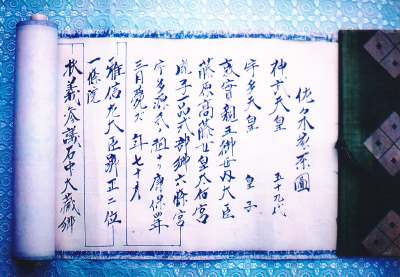 佐々木家系圖
神武天皇 五十九代
宇多天皇 皇子
敦實親王御母内大臣
藤原高藤女皇太后宮
胤子一品式部卿六條宮
宇多源氏祖 康保四年
三月薨ズ 年七十五
雅信左大臣正二位
一條院
扶義参議右中大藏卿